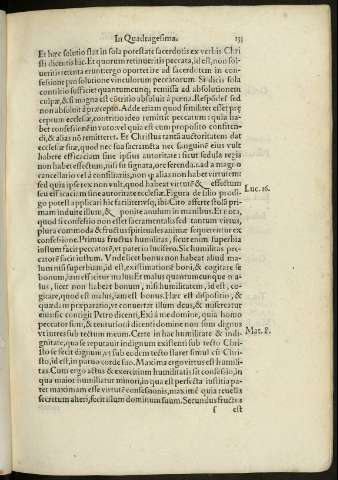 In Quadragesima. 133
Et hæc solutio stat in sola potestate sacerdotis ex verbis Chri
sti dicentis hic. Et quorum retinueritis peccata, id est, non sol-
ueritis retenta erunt ergo oportet ire ad sacerdotem in con-
fessione pro solutione vinculorum peccatorum. Si dicis sola
contritio sufficiet quantumcunq; remissa ad absolutionem
culpæ, & si magna est cõtritio absoluit à pœna. Respõdet sed
non absoluit à præcepto. Adde etiam quod similiter esset præ
ceptum ecclesiæ, contritio ideo remittit peccatum: quia ha-
bet confessionẽ in voto. vel quia est cum proposito confiten-
di, & alias nõ remitteret. Et Christus tantã auctoritatem dat
ecclesiæ suæ, quod nec sua sacramẽta nec sanguinẽ eius vult
habere efficaciam sine ipsius autoritate: sicut sedula regis
non habet effectum, nisi sit signata, ore ferenda. tad a magno
cancellario vel à consiliariis, non quia alias non habet virtutem:
sed quia ipse rex non vult, quod habeat virtutẽ & effectum
seu efficaciam sine autoritate ecclesiæ. Figura de filio prodi- Luc. 16.
go potest applicari hic satiùs. ibi. Cito afferte stolã pri-
mam induite illum, & ponite anulum in manibus. Et nota,
quod si confessio non esset sacramentalis sed tantum visus,
plura commoda & fructus spirituales animæ sequerentur ex
confessione. Primus fructus humilitas, sicut enim superbia
iustum facit peccatorẽ, vt patet in lucifero. Sic humilitas pec-
catorẽ facit iustum. Vnde licet bonus non habeat aliud ma-
lum nisi superbiam, id est, existimationẽ boni, & cogitare se
bonum, iam efficitur malus: Et malus quantumcunque ma-
lus, licet non habeat bonum, nisi humilitatem, id est, co-
gitare, quod est malus, iam est bonus. Hæc est dispositio, &
quædam præparatio, vt conuertat illum deus, & misereatur
eius. sic contigit Petro dicenti, Exi à me domine, quia homo
peccator sum, & centurioni dicenti domine non sum dignus
vt intres sub tectum meum. Certe in hac humilitate & indi- Mat. 8.
gnitate, qua se reputauit indignum existenti sub tecto Chri-
sto se fecit dignum, vt sub eodem tecto staret simul cũ Chri-
sto, id est, in paruo corde suo. Maxima ergo virtus est humili-
tas. Cum ergo actus & exercitium humilitatis sit confessio, in
qua maior humiliatur minori, in qua est perfecta iustitia pa-
tet maximam esse virtutẽ confessionis, maximè quia reuelãs
secretum alteri, fecit illum dominum suum. Secundus fructus
f est